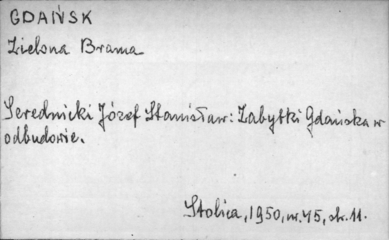 GDAŃSK
Zielona Brama
Serednicki Józef Stanisław: Zabytki Gdańska w
odbudowie.
Stolica, 1950, nr. 45, str. 11.